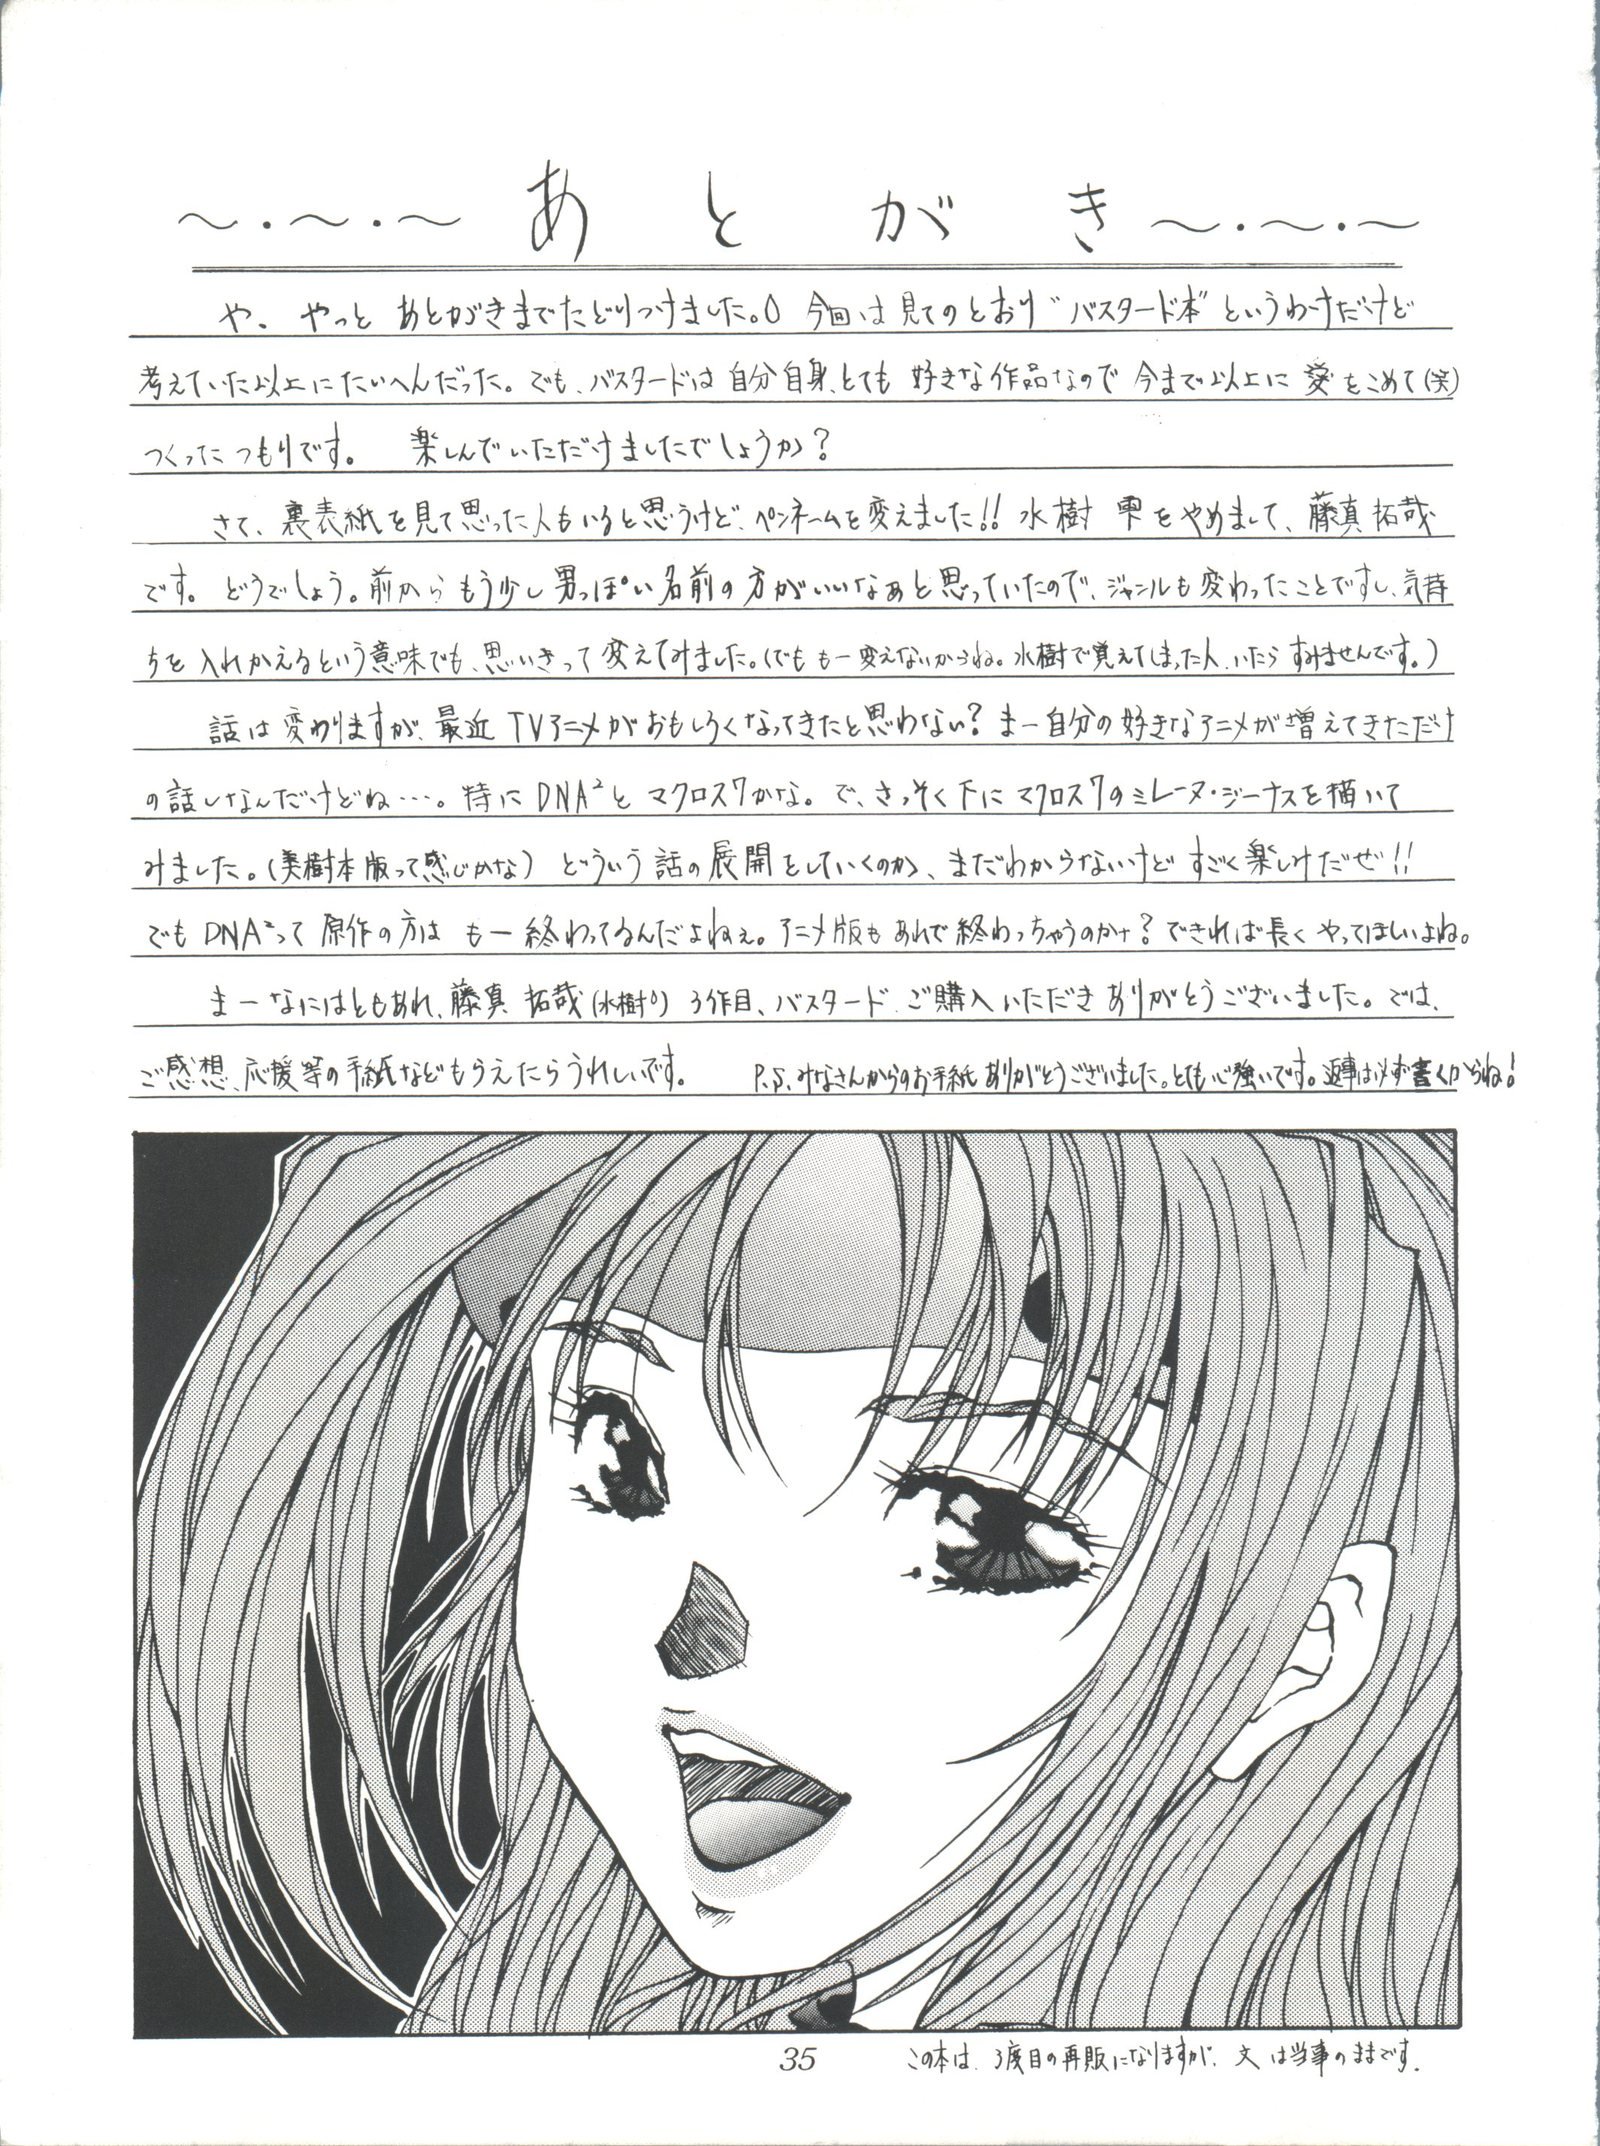 ～・～・～ あとがき ～・～・～
や、やっと あとがきまでたどりつけました。今回は見てのとおり"バスタード本"というわけだけど
考えていた以上にたいへんだった。でも、バスタードは自分自身、とても好きな作品なので今まで以上に愛をこめて(笑)
つくったつもりです。 楽しんでいただけましたでしょうか？
さて、裏表紙を見て思った人もいると思うけど、ペンネームを変えました!! 水樹 雫をやめまして、藤真拓哉
です。どうでしょう。前からもう少し男っぽい名前の方がいいなぁと思っていたので、ジャンルも変わったことですし、気持
ちを入れかえるという意味でも、思いきって変えてみました。(でももー変えないからね。水樹で覚えてしまった人、いたらすみませんです。)
話は変わりますが、最近TVアニメがおもしろくなってきたと思わない？まー自分の好きなアニメが増えてきただけ
の話しなんだけどね…。特にDNA²とマクロス7かな。で、さっそく下にマクロス7のミレーヌ・ジーナスを描いて
みました。(美樹本版って感じかな) どういう話の展開をしていくのか、まだわからないけどすごく楽しみだぜ!!
でもDNA²って原作の方はもー終わってるんだよねぇ。アニメ版もあれで終わっちゃうのかナ？できれば長くやってほしいよね。
まーなにはともあれ、藤真 拓哉(水樹) 3作目、バスタード ご購入いただきありがとうございました。では、
ご感想、応援等の手紙などもらえたらうれしいです。 P.S.みなさんからのお手紙ありがとうございました。とても心強いです。返事は必ず書くからね！
35
この本は、3度目の再販になりますが、文は当事のままです.